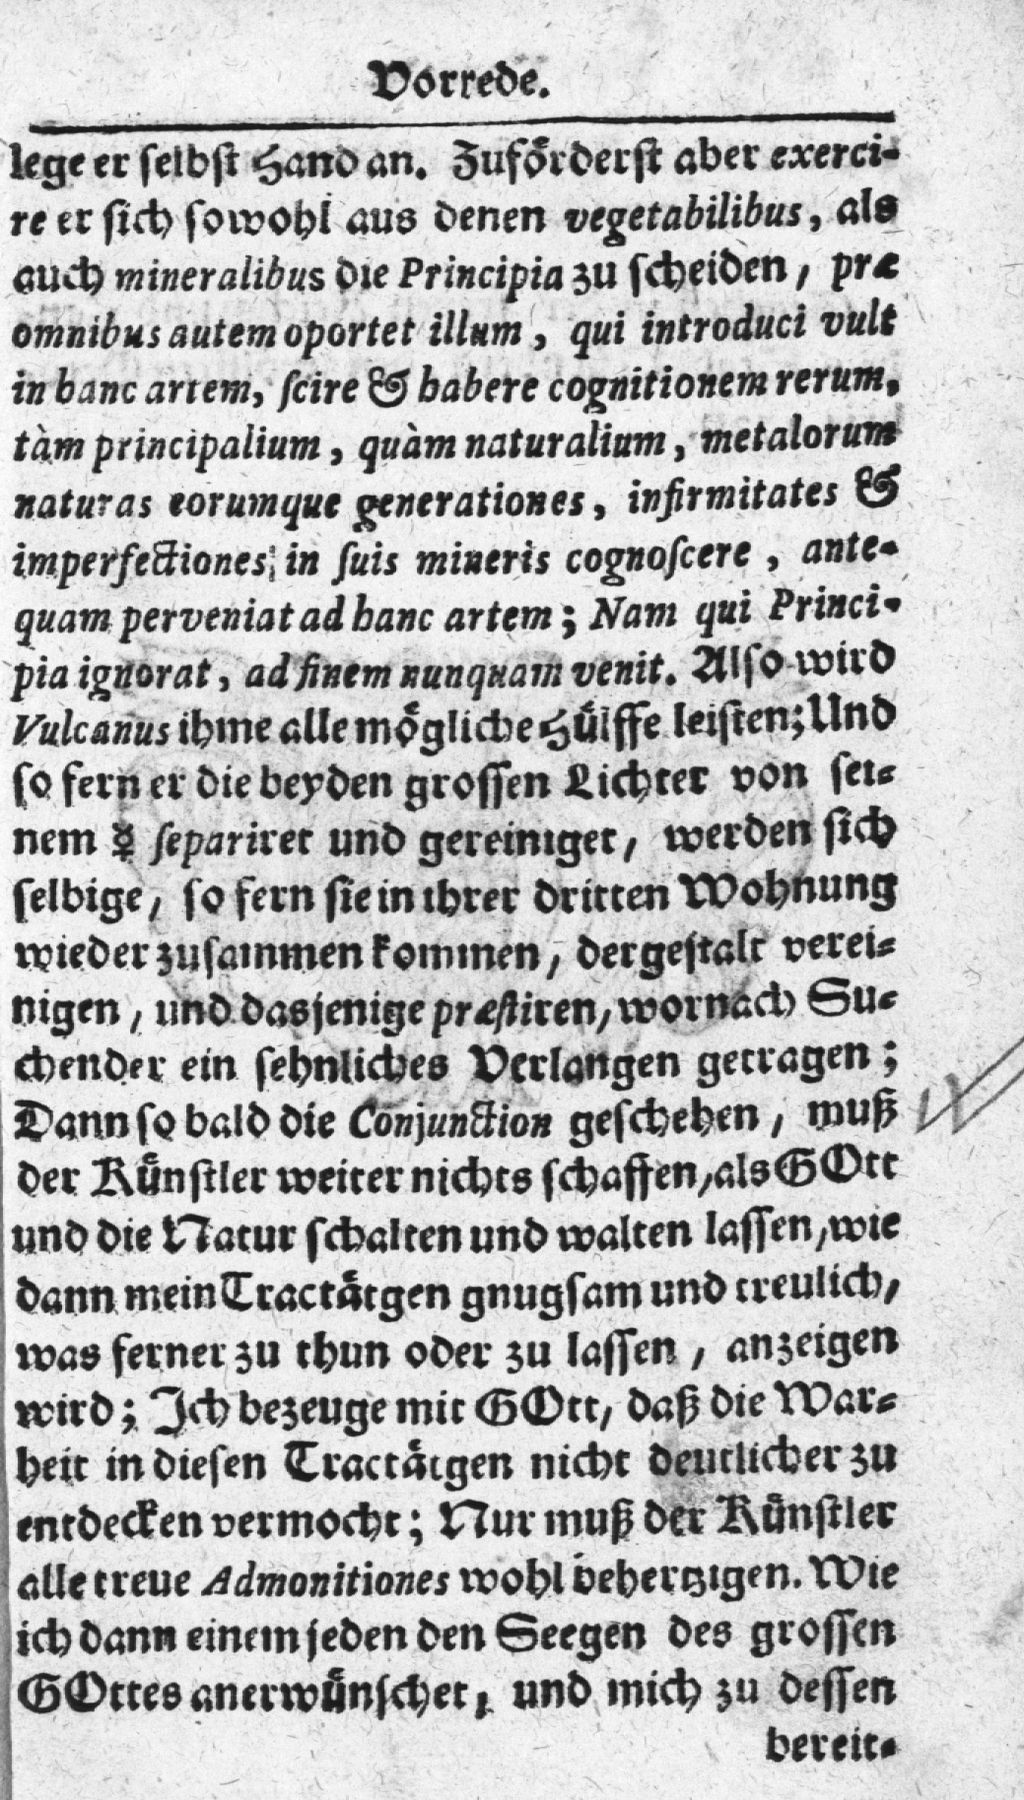 Vorrede.
lege er selbst Hand an. Zuförderst aber exerci-
re er sich sowohl aus denen vegetabilibus, als
auch mineralibus die Principia zu scheiden, præ
omnibus autem oportet illum, qui introduci vult
in hanc artem, scire & habere cognitionem rerum,
tàm principalium, quàm naturalium, metalorum
naturas eorumque generationes, infirmitates &
imperfectiones, in suis mineris cognoscere, ante-
quam perveniat ad hanc artem; Nam qui Princi-
pia ignorat, ad finem nunquam venit. Also wird
Vulcanus ihme alle mögliche Hülffe leisten; Und
so fern er die beyden grossen Lichter von sei-
nem ☿ separiret und gereiniget, werden sich
selbige, so fern sie in ihrer dritten Wohnung
wieder zusammen kommen, dergestalt verei-
nigen, und dasjenige præstiren, wornach Su-
chender ein sehnliches Verlangen getragen;
Dann so bald die Conjunction geschehen, muß
der Künstler weiter nichts schaffen, als GOtt
und die Natur schalten und walten lassen, wie
dann mein Tractätgen gnugsam und treulich,
was ferner zu thun oder zu lassen, anzeigen
wird; Ich bezeuge mit GOtt, daß die War-
heit in diesen Tractätgen nicht deutlicher zu
entdecken vermocht; Nur muß der Künstler
alle treue Admonitiones wohl behertzigen. Wie
ich dann einem jeden den Seegen des grossen
GOttes anerwünschet, und mich zu dessen
bereit-